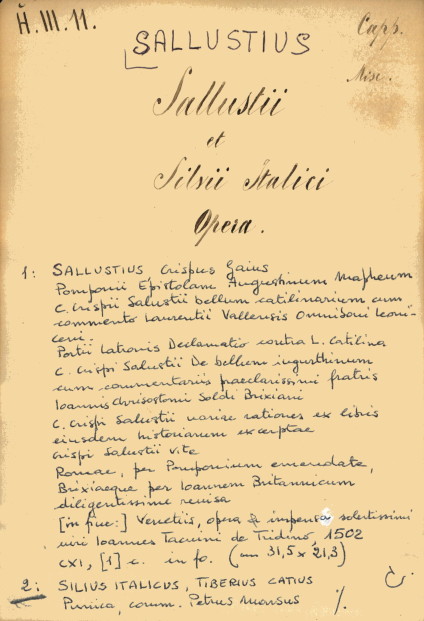 H.III.11.
Capp.
Misc.
SALLUSTIUS
Sallustii
et
Silvii Italici
Opera.
1: SALLUSTIUS, Crispus Gaius
Pomponii Epistolam Augustinum Mapheum
C. Crispii Salustii bellum catilinarium cum
commento Laurentii Vallensis Omniboni Leoni-
ceni.
Portii Latronis Declamatio contra L. Catilina
C. Crispi Salustii De bellum iugurthinum
cum commentariis praeclarissimi fratris
Ioannis Chrisostomi Soldi Brixiani
C. Crispi Salustii variae rationes ex libris
eiusdem historiarum excerptae
Crispi Salustii vita
Romae, per Pomponium emendata,
Brixiaeque per Ioannem Britannicum
diligentissime revisa
[in fine:] Venetiis, opera & impensa solertissimi
viri Ioannes Tacuini de Tridino, 1502
CXI, [1] c. in fo. (mm 31,5 x 21,3)
2: SILIUS ITALICUS, TIBERIUS CATIUS
Punica, comm. Petrus Marsus ./.